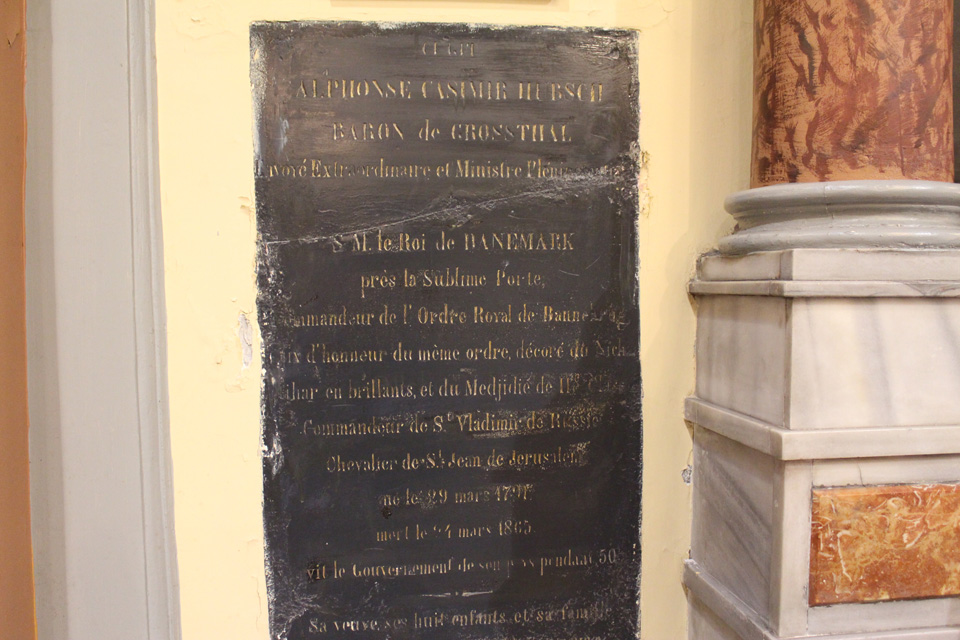 CI GIT
ALPHONSE CASIMIR HUBSCH
BARON de GROSSTHAL
Extraordinaire et Ministre
S. M. le Roi de DANEMARK
près la Sublime Porte,
de l'Ordre Royal de
d'honneur du même ordre, décoré du
en brillants, et du Medjidié de
Commandeur de St Vladimir de Russie
Chevalier de St Jean de Jerusalem
né le 29 mars
mort le 24 mars 1865
le Gouvernement de son pendant 50
Sa veuve, ses huit enfants et sa